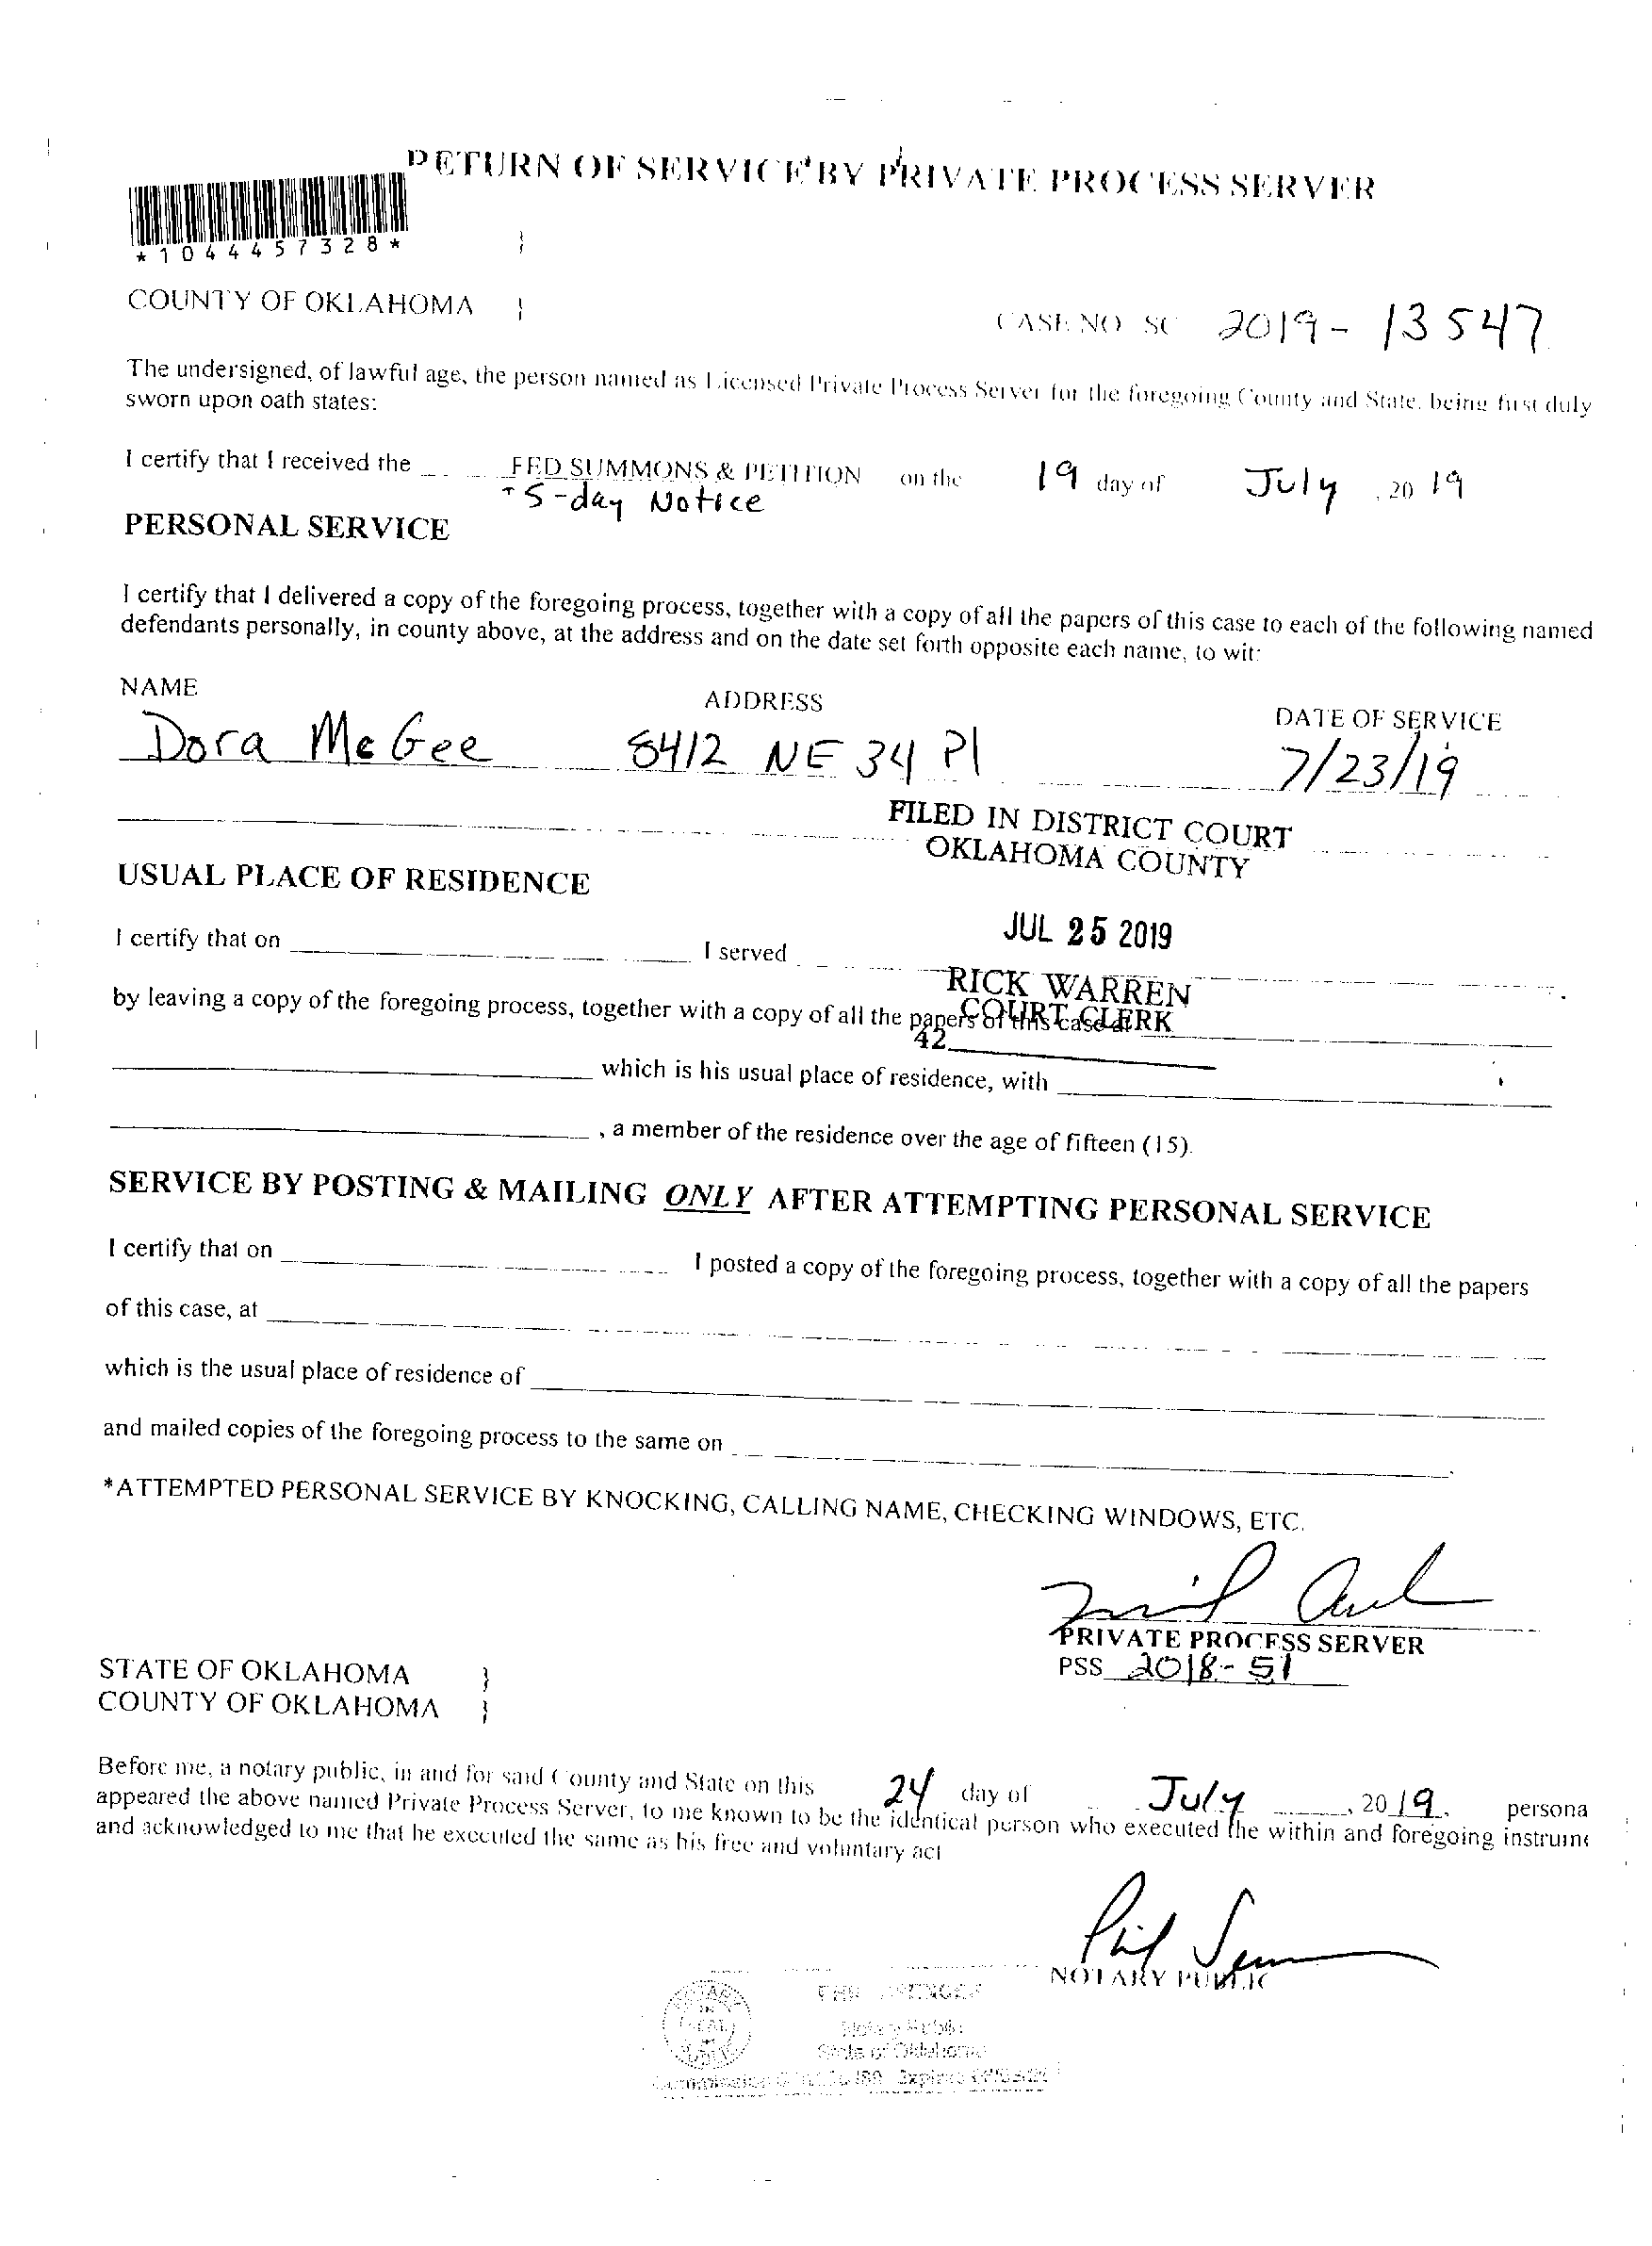 RETURN OF SERVICE BY PRIVATE PROCESS SERVER
*1044457328*
COUNTY OF OKLAHOMA }
CASE NO SC 2019-13547
The undersigned, of lawful age, the person named as Licensed Private Process Server for the foregoing County and State, being first duly
sworn upon oath states:
I certify that I received the FED SUMMONS & PETITION on the 19 day of July, 20 19
+ 5-day Notice
PERSONAL SERVICE
I certify that I delivered a copy of the foregoing process, together with a copy of all the papers of this case to each of the following named
defendants personally, in county above, at the address and on the date set forth opposite each name, to wit:
NAME ADDRESS DATE OF SERVICE
Dora McGee 8412 NE 34 Pl 7/23/19
FILED IN DISTRICT COURT
OKLAHOMA COUNTY
USUAL PLACE OF RESIDENCE
JUL 25 2019
I certify that on I served
RICK WARREN
COURT CLERK
by leaving a copy of the foregoing process, together with a copy of all the papers of this case at
42
which is his usual place of residence, with
, a member of the residence over the age of fifteen (15).
SERVICE BY POSTING & MAILING ONLY AFTER ATTEMPTING PERSONAL SERVICE
I certify that on I posted a copy of the foregoing process, together with a copy of all the papers
of this case, at
which is the usual place of residence of
and mailed copies of the foregoing process to the same on
*ATTEMPTED PERSONAL SERVICE BY KNOCKING, CALLING NAME, CHECKING WINDOWS, ETC.
PRIVATE PROCESS SERVER
PSS 2018-51
STATE OF OKLAHOMA }
COUNTY OF OKLAHOMA }
Before me, a notary public, in and for said County and State on this 24 day of July, 2019, persona
appeared the above named Private Process Server, to me known to be the identical person who executed the within and foregoing instrume
and acknowledged to me that he executed the same as his free and voluntary act
NOTARY PUBLIC
Notary Public
State of Oklahoma